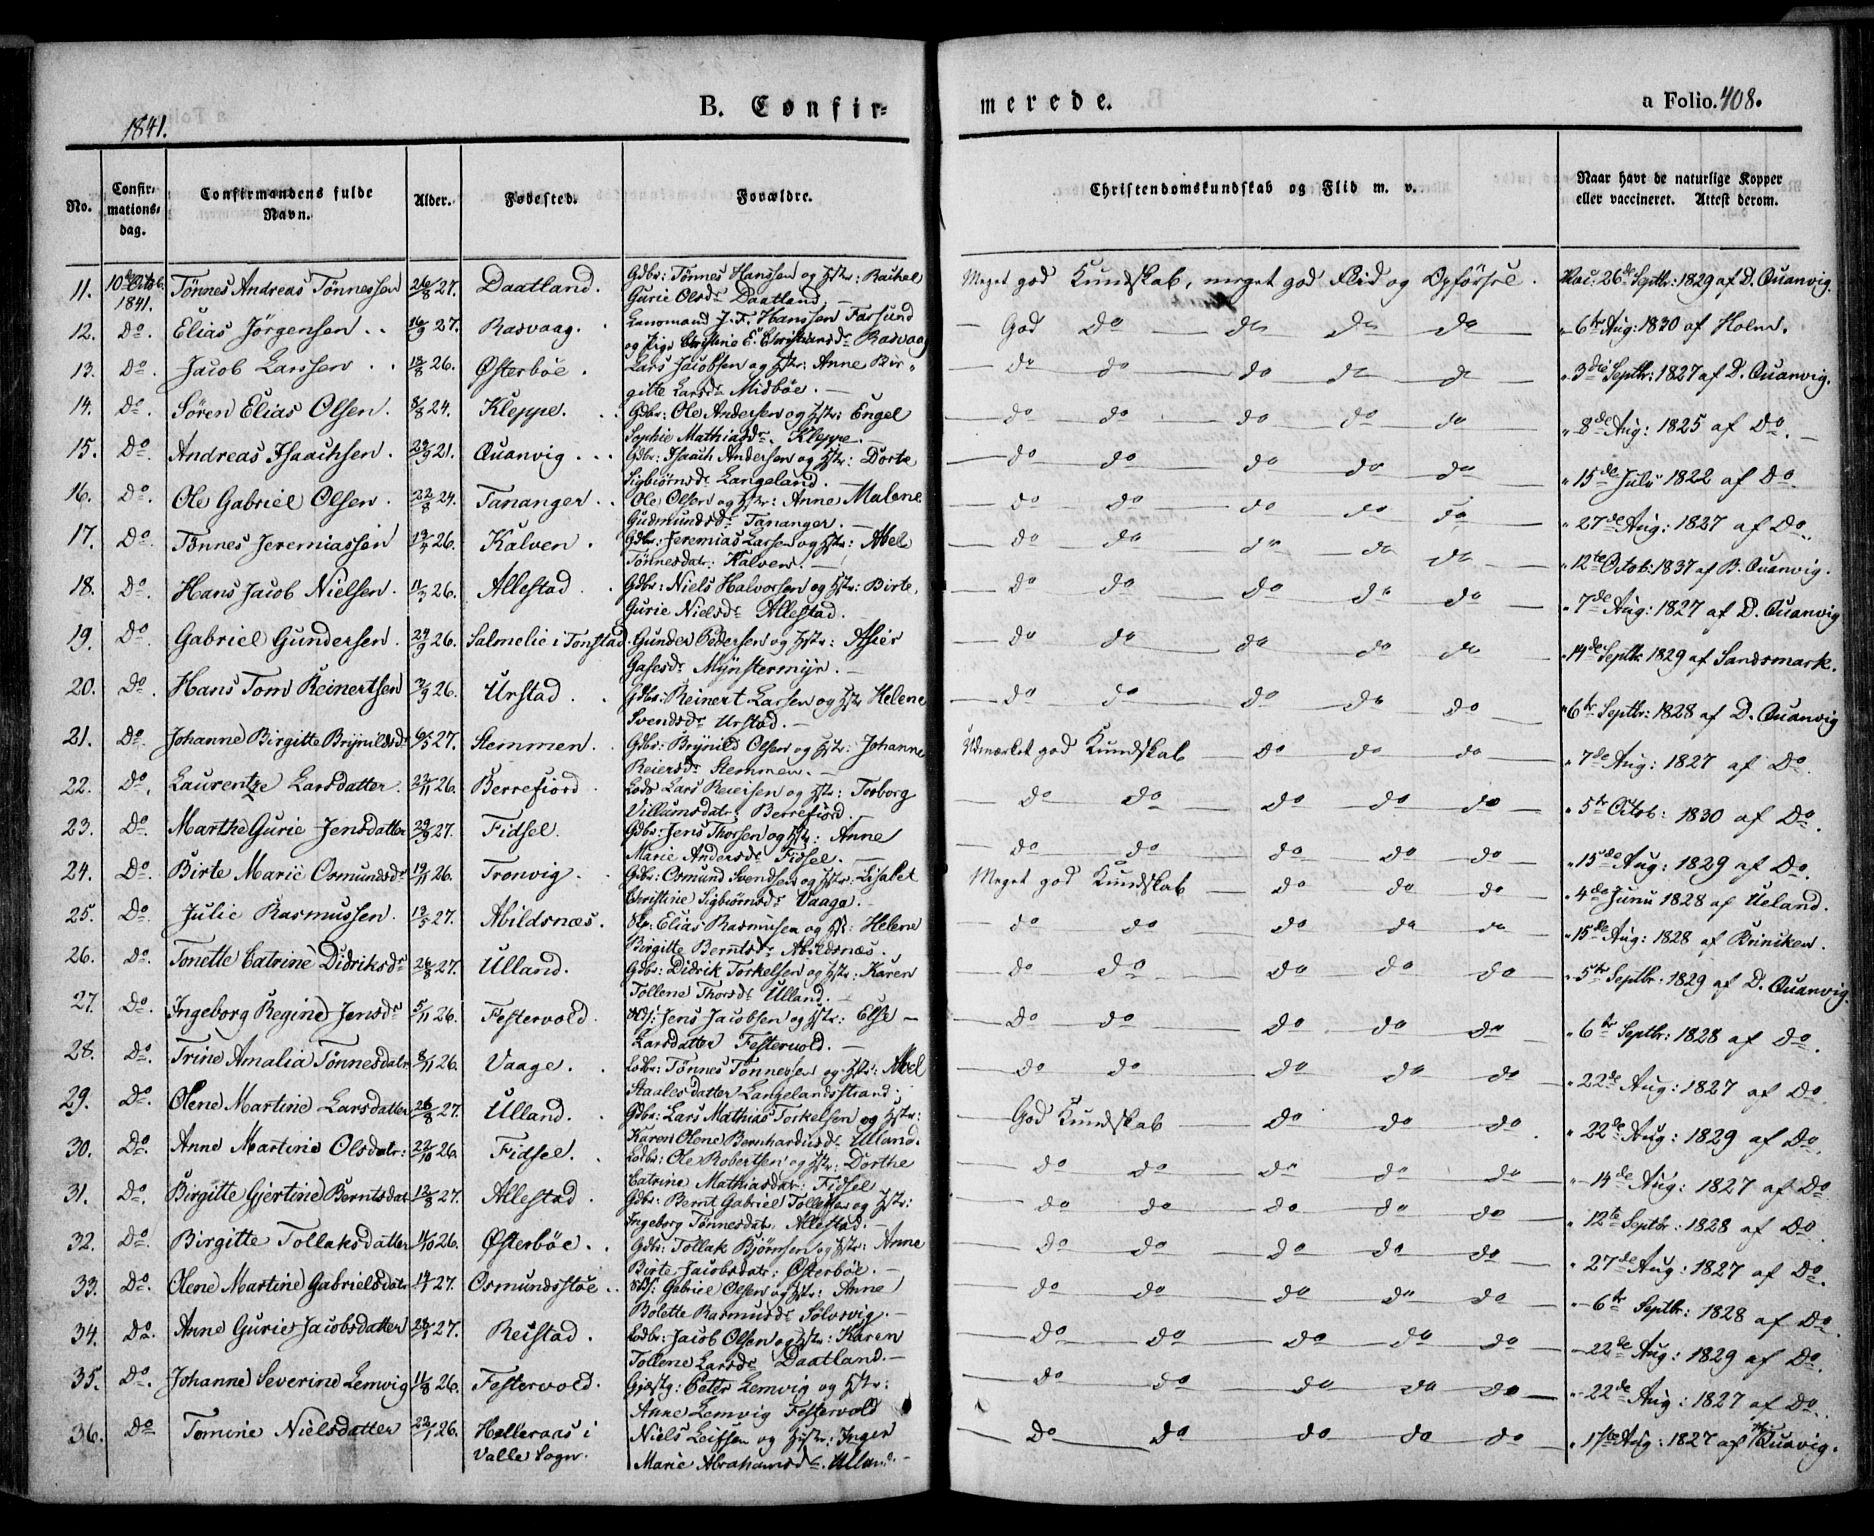 1841.
B. Confir-
merede.
a Folio. 408.
No.
Confir-
mations-
dag.
Confirmandens fulde
Navn.
Alder.
Fødested.
Forældre.
Christendomskundskab og Flid m. v.
Naar havt de naturlige Kopper
eller vaccineret. Attest derom.
11. 10de Octob. 1841. Tönnes Andreas Tönnessen 26/8 27. Daatland. Gdbr: Tönnes Hanssen og Hstr: Rachel
Gurie Olsdr Daatland.
Meget god Kundskab, meget god Flid og Opförsel. Vac: 26de Septbr: 1829 af D. Quanvig.
12. Do. Elias Jörgensen 16/9 27. Rasvaag. J. F. Hanssen Farsund
og Pige Christine E. Christiansdr Rasvaag
God do do do do " 6te Aug: 1830 af Holm.
13. Do. Jacob Larssen 18/8 26. Østerböe. Lars Jacobsen og Hstr: Anne Bir-
gitte Larsdr Midböe.
do do do do do " 3die Septbr: 1827 af D. Quanvig.
14. Do. Sören Elias Olsen. 8/8 24. Kleppe. Gdbr: Ole Andersen og Hstr: Engel
Sophie Mathiasdr. Kleppe.
do do do do do " 8de Aug: 1825 af Do.
15. Do. Andreas Isaachsen. 21. Quanvig. Gdbr: Isaach Andersen og Hstr: Dorte
Sigbiörnsdr Langeland.
do do do do do " 15de Juli 1822 af Do.
16. Do. Ole Gabriel Olsen. 22/8 24. Tananger. Ole Olsen og Hstr: Anne Malene
Gudmundsdr Tananger.
do do do do do " 27de Aug: 1827 af Do.
17. Do. Tönnes Jeremiassen 26. Kalven. Gdbr: Jeremias Larsen og Hstr: Abel
Tönnesdatr: Kalven.
do do do do do " 12te Octob: 1837 af B. Quanvig.
18. Do. Hans Jacob Nielsen. 26. Allestad. Gdbr: Niels Halvorsen og Hstr: Birte
Gurie Nielsdr Allestad.
do do do do do " 7de Aug: 1827 af D. Quanvig
19. Do. Gabriel Gundersen 24/9 26. Salmelie i Tonstad. Gunder Pedersen og Hstr:
Mÿnstermÿr.
do do do do do " 14de Septbr 1829 af Sandsmark.
20. Do. Hans Tom Reinertsen 26. Urstad. Gdbr: Reinert Larsen og Hstr Helene
Svendsdr Urstad.
do do do do do " 6te Septbr: 1828 af D. Quanvig
21. Do. Johanne Birgitte Brynildsdr 27. Stemmen. Gdbr: Brynild Olsen og Hstr: Johanne
Reiersdr Stemmen.
Udmærket god Kundskab do do do " 7de Aug: 1827 af Do.
22. Do. Laurentze Larsdatter. 26. Berrefiord. Lods Lars Reiersen og Hstr: Torborg
Villumsdatr: Berrefiord.
do do do do do " 5te Octob: 1830 af Do.
23. Do. Marthe Gurie Jensdatter 29/9 27. Fidsel. Gdbr: Jens Thorsen og Hstr: Anne
Marie Andersdr Fidsel.
do do do do do " 15de Aug: 1829 af Do.
24. Do. Birte Marie Osmundsdr 19/11 26. Tronvig. Gdbr: Osmund Svendsen og Hstr: Lisabet
Christine Sigbiörnsdr Vaage.
Meget god Kundskab do do do " 4de Junii 1828 af Ueland.
25. Do. Julie Rasmussen. 27. Abildsnæs. Elias Rasmussen og H: Helene
Birgitte Berntsdr Abildsnæs.
do do do do do " 15de Aug: 1828 af Briniken.
26. Do. Tonette Catrine Didriksdr 26/8 27. Ulland. Gdbr: Didrik Torkelsen og Hstr: Karen
Tollene Thorsdr Ulland.
do do do do do " 5te Septbr: 1829 af D. Quanvig.
27. Do. Ingeborg Regine Jensdr 5/11 26. Festervold. Jens Jacobsen og Hstr: Else
Larsdatter Festervold.
do do do do do " 6te Septbr: 1828 af Do.
28. Do. Trine Amalia Tönnesdatr 8/11 26. Vaage. Lodbr: Tönnes Tönnesen og Hstr: Abel
Staalesdatter Langelandsstrand.
do do do do do " 22de Aug: 1827 af Do.
29. Do. Olene Martine Larsdatter 26/8 27. Ulland. Gdbr: Lars Mathias Torkelsen og Hstr:
Karen Olene Bernhardusdr Ulland.
God Kundskab do do do " 22de Aug: 1829 af Do.
30. Do. Anne Martine Olsdatr: 22/10 26. Fidsel. Lodbr: Ole Robertsen og Hstr: Dorthe
Catrine Mathiasdatr: Fidsel
do do do do do " 14de Aug: 1827 af Do
31. Do. Birgitte Gjertine Berntsdatr 12/8 27. Allestad. Gdbr: Bernt Gabriel Tollefsen og Hstr:
Ingeborg Tönnesdatr Allestad.
do do do do do " 12te Septbr: 1828 af Do.
32. Do. Birgitte Tollaksdatter 26. Østerböe. Gdbr: Tollak Björnsen og Hstr: Anne
Birte Jacobsdatr: Østerböe.
do do do do do " 27de Aug: 1827 af Do.
33. Do. Olene Martine Gabrielsdatr 27. Osmundsstöe. Gabriel Olsen og Hstr: Anne
Bolette Rasmusdr Sölvsvig.
do do do do do " 6te Septbr: 1828 af Do.
34. Do. Anne Gurie Jacobsdatter 27. Reistad. Lodbr: Jacob Olsen og Hstr: Karen
Tollene Larsdr Daatland.
do do do do do 22de Aug: 1829 af Do.
35. Do. Johanne Severine Lemvig 11/8 26. Festervold. Gjæstg: Peter Lemvig og Hstr:
Anne Lemvig Festervold
do do do do do 22de Aug: 1827 af Do.
36. Do Tomine Nielsdatter 22/1 26. Helleraas i
Valle Sogn. Niels Leifsen og Hstr: Inger
Marie Abrahamsdr. Ulland.
do do do do do " 17te Aug: 1827 af Quavig.